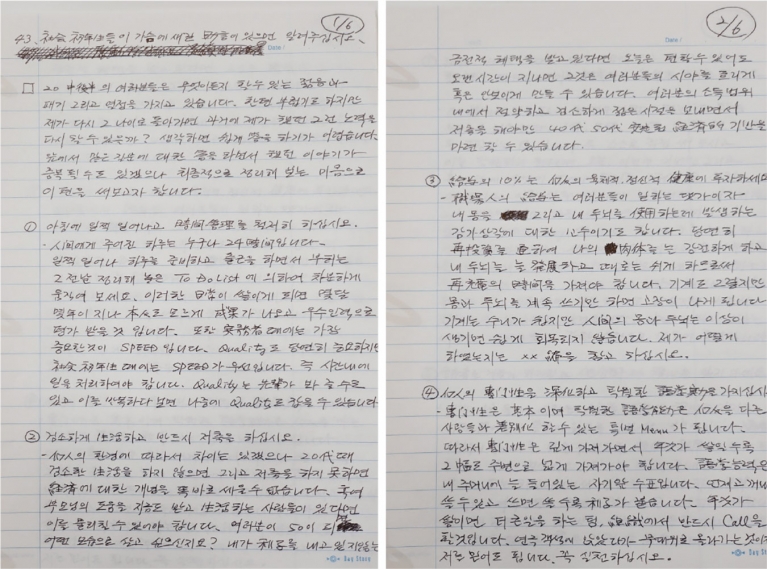 1/6
43. 社会 初年生들이 가슴에 새길 명언이 있으면 말해주십시요.
□ 20 中後半의 여러분들은 무엇이든지 할 수 있는 젊음과
패기 그리고 열정을 가지고 있습니다. 한편 부럽기도 하지만
제가 다시 그 나이로 돌아가면 과거에 제가 했던 그런 노력을
다시 할 수 있을까? 생각하면 쉽게 답을 하기가 어렵습니다.
앞에서 많은 질문에 대한 답을 하면서 했던 이야기가
중복될 수도 있겠으나 최종적으로 정리해 보는 마음으로
이 편을 써보고자 합니다.
① 아침에 일찍 일어나고 時间管理를 철저히 하십시요.
- 人间에게 주어진 하루는 누구나 24時间입니다.
일찍 일어나 하루를 준비하고 출근을 하면서 우하는
그 전날 정리해 놓은 To Do List에 의하여 차분하게
움직여 보세요. 이러한 日常이 쌓이게 되면 몇달
몇年이 지나 本人도 모르게 成果가 나오고 우수인력으로
평가 받을 것 입니다. 또한 実務者 때에는 가장
중요한것이 SPEED 입니다. Quality도 당연히 중요하지만
社会 初年生 때에는 SPEED가 우선입니다. 즉 시간내에
일을 처리하여야 합니다. Quality는 先輩가 봐 줄 수도
있고 이를 반복하다 보면 나중에 Quality도 잡을 수 있습니다
② 검소하게 生活하고 반드시 저축을 하십시요.
- 個人의 환경에 따라서 차이는 있겠으나 20代 때
검소한 生活을 하지 않으면 그리고 저축을 하지 못하면
経済에 대한 개념을 바로 세울 수 없습니다. 혹여
부모님의 도움을 지금도 받고 生活하는 사람들이 있다면
이를 뿌리칠 수 있어야 합니다. 여러분이 50이 되
어떤 모습으로 살고 싶으신지요? 내가 내고 있지않는
2/6
금전적 혜택을 받고 있다면 오늘은 편할 수 있어도
오랜시간이 지나면 그것은 여러분들의 시야를 흐리게
혹은 안보이게 만들 수 있습니다. 여러분의 소득 범위
내에서 절약하고 검소하게 젊은 시절을 보내면서
저축을 해야만 40代 50代 安定된 経済的 기반을
마련 할 수 있습니다.
③ 給与의 10%는 個人의 육체적, 정신적 健康에 투자하세요
- 職場人의 給与는 여러분들이 일하는 댓가이자
내 몸을 그리고 내 두뇌를 使用하는데 발생하는
감가상각에 대한 보수이기도 합니다. 당연히
再投資를 通하여 나의 肉体를 는 강건하게 하고
내 두뇌는 늘 発展하고 때로는 쉬게 하므로써
再充電의 時间을 가져야 합니다. 기계도 그렇지만
몸과 두뇌를 계속 쓰기만 하면 고장이 나게 됩니다
기계는 수리가 쉽지만 人间의 몸과 두뇌는 이상이
생기면 쉽게 회복되지 않습니다. 제가 어떻게
하였는지는 xx 을 참고 하십시요.
④ 個人의 専门性을 深化하고 탁월한 語学能力은 가지십시
- 専门性은 基本이며 탁월한 語学能力은 個人을 다른
사람들과 差別化 할 수 있는 특별 Menu가 됩니다.
따라서 専门性은 깊게 가져가면서 年것가 쌓일 수록
그 幅도 주변으로 넓게 가져가야 합니다. 語学能力은
내 주머니에 늘 들어있는 자기앞 수표입니다. 언제고 꺼내
쓸 수 있고 쓰면 쓸 수록 가 붙습니다. 年것가
쌓이면 더 큰일을 하는 팀, 에서 반드시 Call을
할것입니다. 연공 는
저런 되도 됩니다. 꼭 실천하십시요.